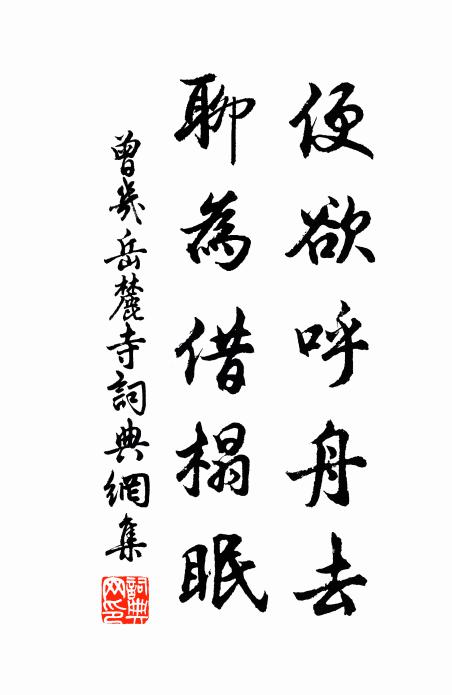 便欲呼舟去
聊為借榻眠
曾幾岳麓寺詞典網集
詞典
网印